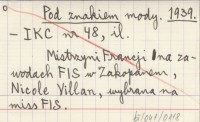 Pod znakiem mody. 1939.
- IKC nr 48, il.
Mistrzyni Francji na za-
wodach FIS w Zakopanem,
Nicole Villan, wybrana na
miss FIS.